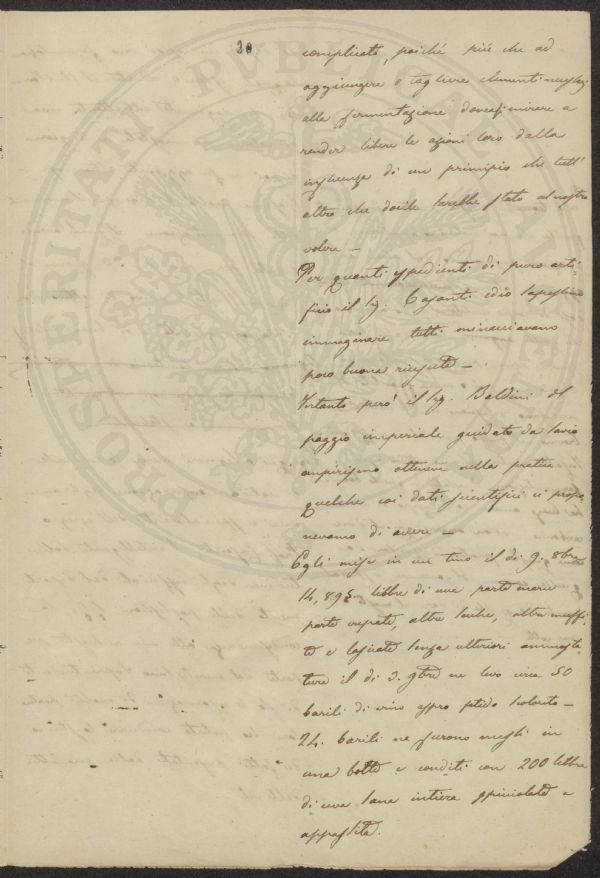 20
complicato, poiché più che ad
aggiungere o tagliere elementi
alle fermentazione doveasi mirare a
render libere le azioni loro dalla
influenza di un principio che tutt'
altro che docile sarebbe stato al nostro
volere —
Per quanti espedienti di puro arti-
fizio il Sig. Casanti ed io sapessimo
immaginare tutti minacciavano
poco buona riuscita —
Intanto però il Sig. Baldini del
poggio imperiale guidato da savio
empirismo ottenne nella pratica
quelche coi dati scientifici ci propo
nevamo di avere —
Egli mise in un tino il dì 9. 8bre
14,895 libbre di uve parte marce
parte crepate, altre secche, altre muffi
te e lasciate senza ulteriori ammosta
ture il dì 3. 9bre ne levò circa 50
barili di vino aspro fetido scolorito —
24. barili ne furono messi in
una botte e conditi con 200 libbre
di uva sana intiera spicciolata e
appassita.
PROSPERITATI PVBLICAE AVGENDAE